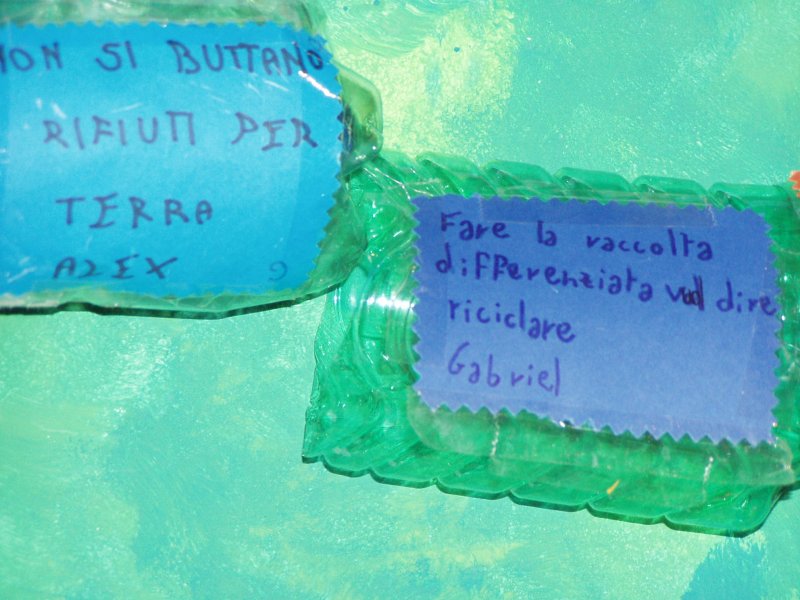 NON SI BUTTANO
RIFIUTI PER
TERRA
ALEX
Fare la raccolta
differenziata vuol dire
riciclare
Gabriel